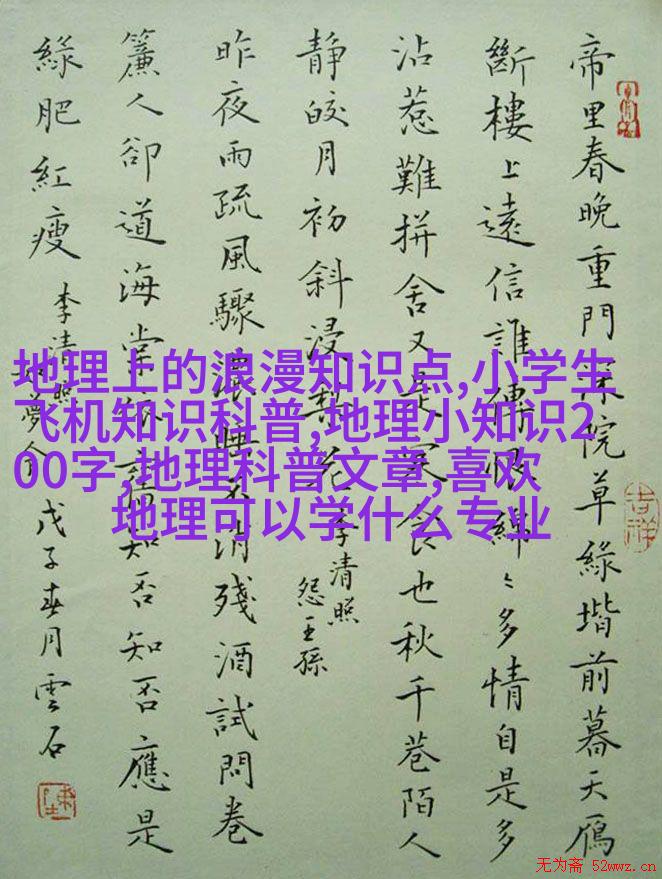 帝里春晚重門深院草緑堦前暮天鴈
斷樓上遠信誰傳恨綿〻多情自是多
沾惹難拚舍又是寒食也秋千巷陌人
静皎月初斜浸梨花 李清照
怨王孫
昨夜雨疏風驟濃睡不消殘酒試問卷
簾人卻道海棠依舊知否知否應是
緑肥紅瘦 李清照
如夢令 戊子春月雲石
地理上的浪漫知识点,小学生
飞机知识科普,地理小知识2
00字,地理科普文章,喜欢
地理可以学什么专业
无为斋 52wwz.cn